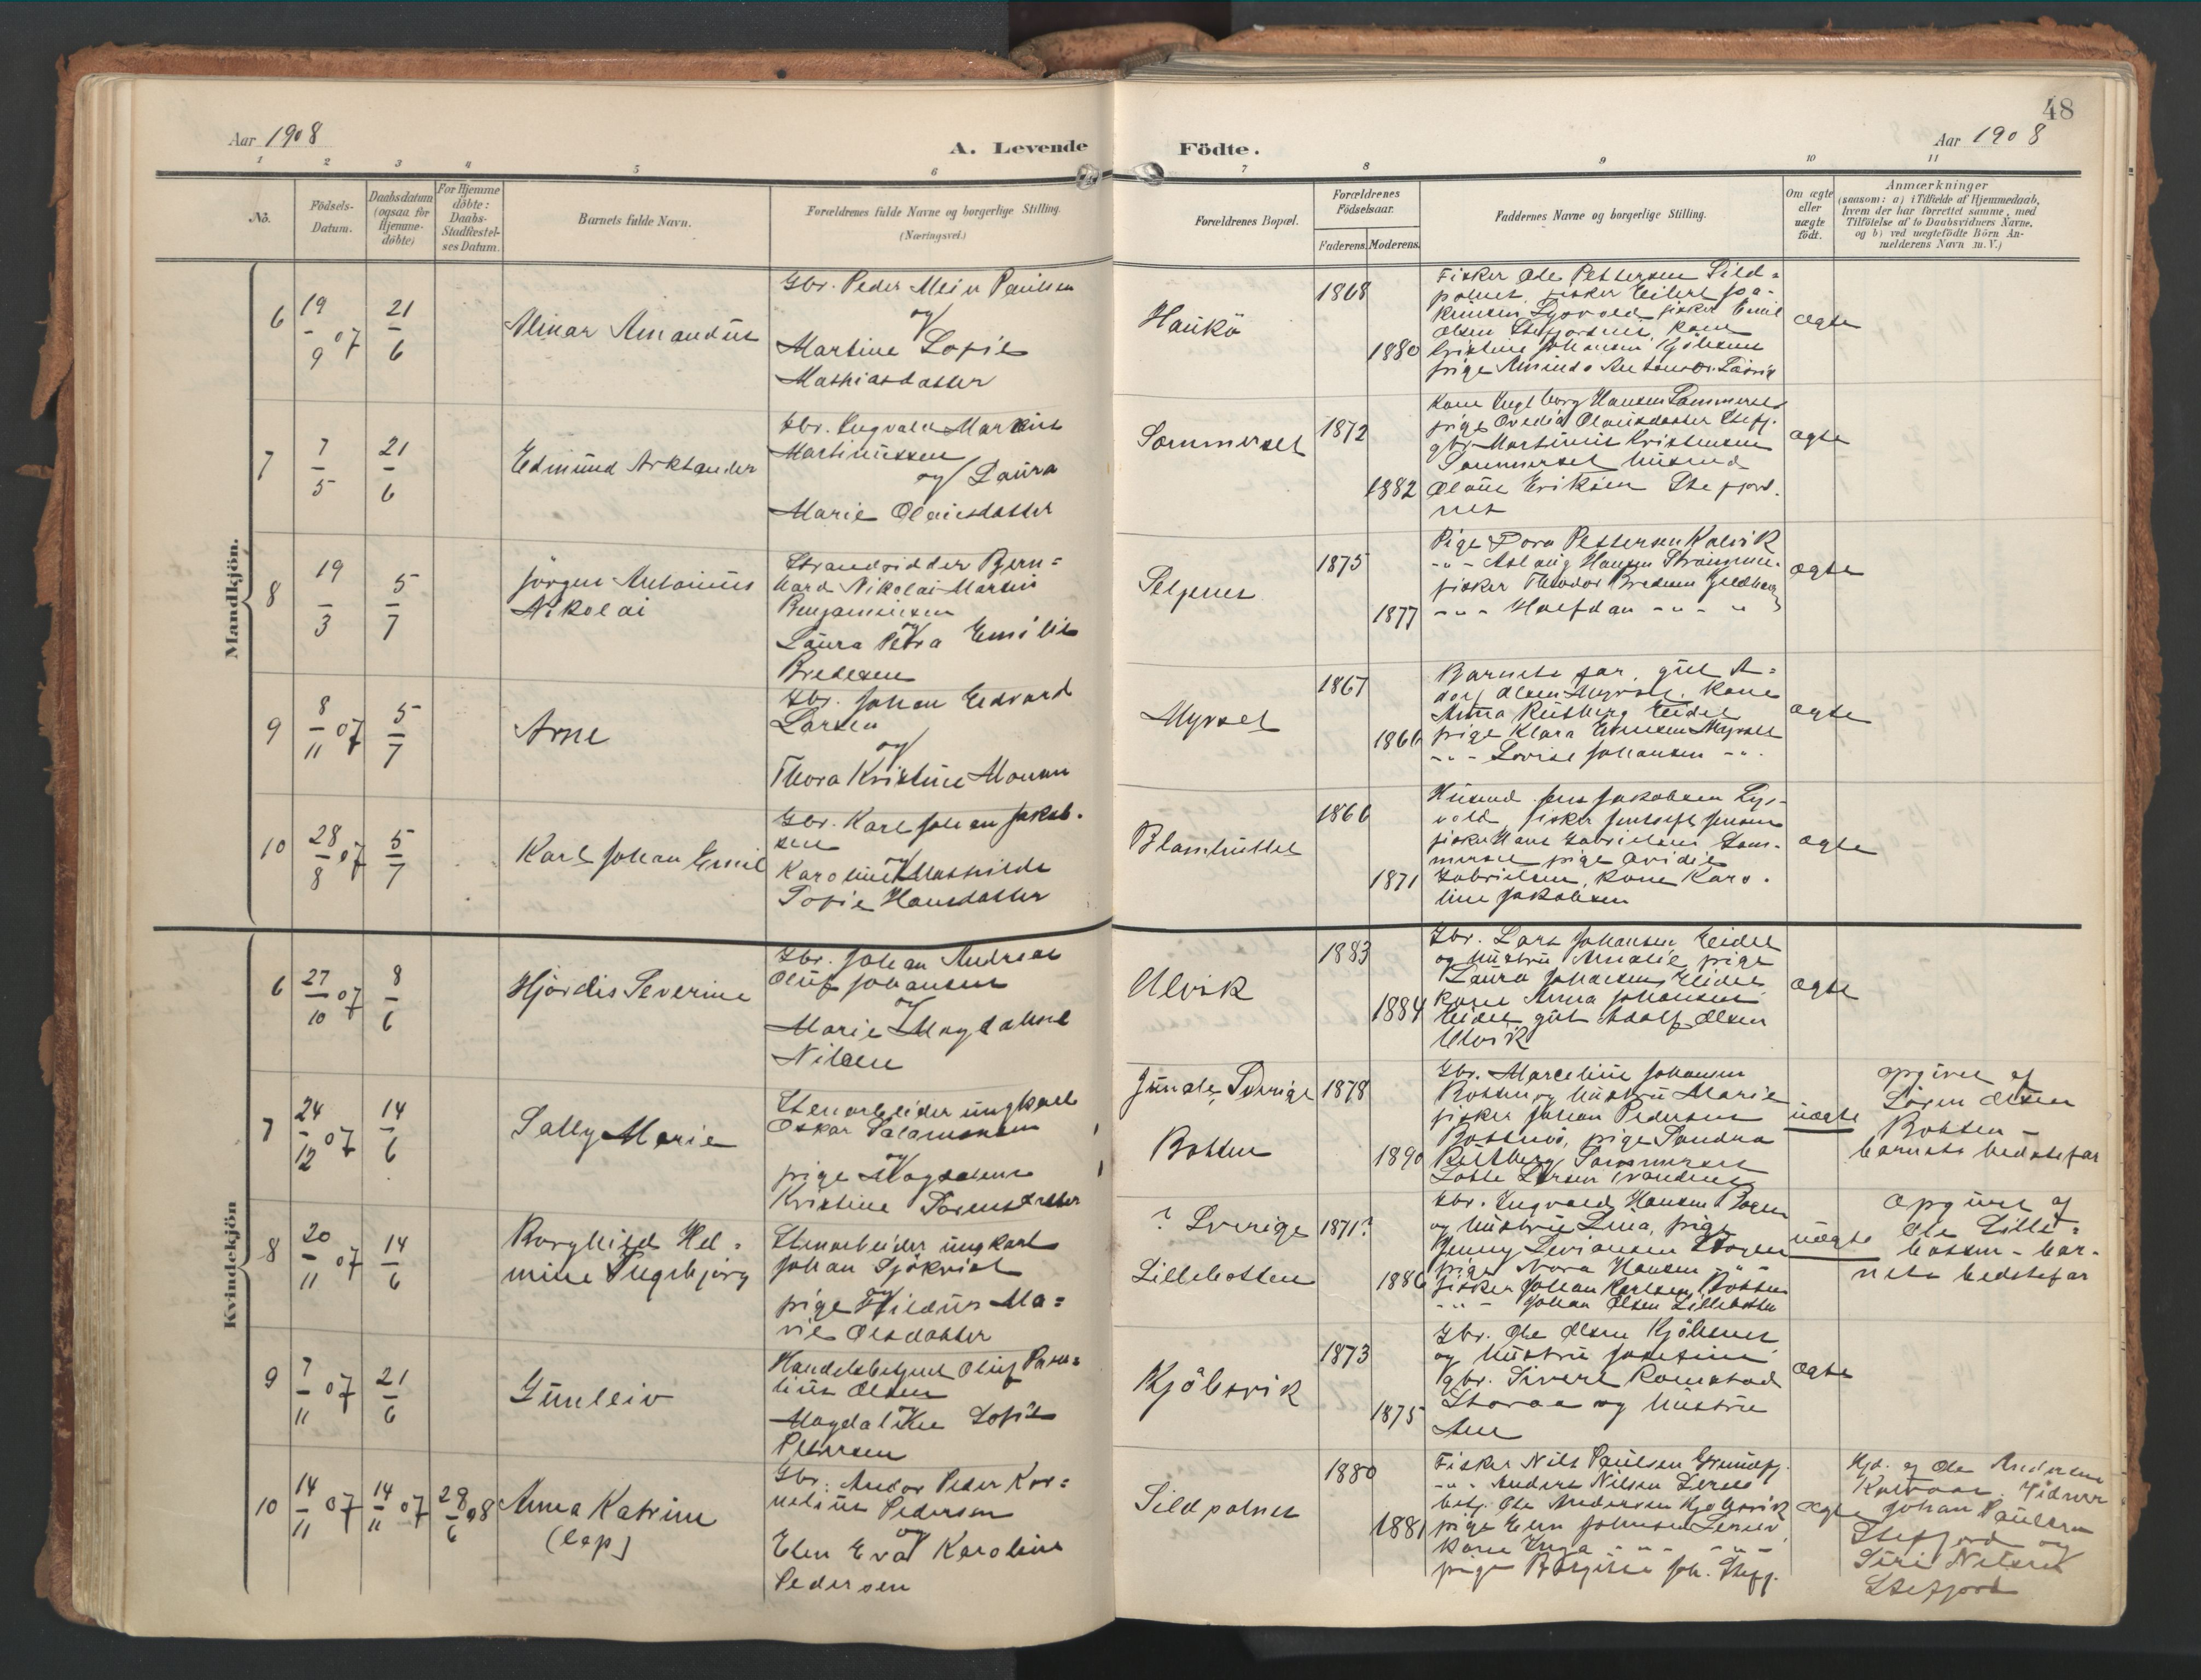 48
Aar 1908
A. Levende
Födte.
Aar 1908
1 2 3 4 5 6 7 8 9 10 11
No.
Födsels-
Datum.
Daabsdatum
(ogsaa for
Hjemme-
döbte)
For Hjemme
döbte:
Daabs-
Stadfæstel-
ses Datum.
Barnets fulde Navn.
Forældrenes fulde Navne og borgerlige Stilling.
(Næringsvei.)
Forældrenes Bopæl.
Forældrenes
Födselsaar.
Faderens.
Moderens.
Faddernes Navne og borgerlige Stilling.
Om ægte
eller
uægte
födt.
Anmærkninger
(saasom: a) i Tilfælde af Hjemmedaab,
hvem der har forrettet samme, med
Tilföielse af to Daabsvidners Navne,
og b) ved uægtefödte Börn An-
melderens Navn m. V.)
Mandkjön.
6
19
-
9
07
21
-
6
Alinar Amandus
Gbr. Peder Meier Paulsen
og
Martine Sofie
Mathiasdatter
Haukö
1868
1880
Fisker Ole Pettersen Sild=
polnes, fisker Eilert Joa-
kimsen Lysvold fisker Emil
Olsen Stefjordnes, kone
Kristine Johansen Kjölsnes
pige
ægte
7
7
-
5
21
-
6
Edmund Arktander
Gbr. Ingvald Markus
Martinussen
og Laura
Marie Olausdatter
Sommerset
1872
1882
Kone Ingeborg Hansen Sommerset
pige Ovedia Olausdatter Stefj.
gbr. Martinus Kristensen
Sommerset husmd
Olaus Eriksen Stefjord
nes
ægte
8
19
-
3
5
-
7
Jörgen Antonius
Nikolai
Strandsidder Bern=
hard Nikolai Martin
Benjaminsen
og
Laura Petra Emilie
Bredesen
Seljenes
1875
1877
Pige Dora Pettersen Kalvik
-"- Aslaug Hansen
fisker Theodor Bredesen
-"- Halfdan -"- "
ægte
9
8
-
11
07
5
-
7
Arne
Gbr. Johan Edvard
Larsen
og
Thora Kristine Monsen
Myrset
1867
1866
Barnets far, gut A=
dolf Olsen Myrset, kone
Anna Rütberg Eidet
pige Klara Myrset
-"- Lovise Johansen -"-
ægte
10
28
-
8
07
5
-
7
Karl Johan Emil
Gbr. Karl Johan Jakob-
sen
og
Karoline Mathilde
Sofie Hansdatter
Blamhullet
1866
1871
Husmd. Jens Jakobsen Lys-
vold, fisker Jensen
fisker Hans Gabrielsen Som-
merset pige Ovidie
Gabrielsen, kone Karo-
line Jakobsen
ægte
Kvindekjön
6
27
-
10
07
8
-
6
Hjördis Severine
Gbr. Johan Andreas
Oluf Johansen
og
Marie Magdalene
Nilsen
Ulvik
1883
1884
Gbr. Lars Johansen Eidet
og hustru Amalie, pige
Laura Johansen Eidet
kone Anna Johansen
Eidet, gut Adolf Olsen
Ulvik
ægte
7
24
-
12
07
14
-
6
Sally Marie
Stenarbeider ungkarl
Oskar Salamonsen
og
pige Magdalene
Kristine Sorensdatter
Sverige
Botten
1878
1890
Gbr. Marcelius Johansen
Botten og hustru Marie
fisker Johan Pedersen
pige Sandra
Rütberg Sommerset
uægte
opgivet af
Sören Olsen
Botten -
barnets bedstefar
8
20
-
11
07
14
-
6
Borghild Hel=
mine Ingebjörg
Stenarbeider ungkarl
Johan Sjökvist
og
pige Hildur Ma=
rie Olsdatter
? Sverige
Lillebotten
1871?
1886
Gbr. Ingvald Hansen
og hustru Lina, pige
Jenny
pige Nora Hansen -"-
fisker Johan Karlsen, Botten
-"- Johan Olsen Lillebotten
uægte
opgivet af
Ole Lille=
botten - bar-
nets bedstefar
9
7
-
11
07
21
-
6
Gunleiv
Handelsbetjent Oluf Paru=
lius Olsen
og
Magdalene Sofie
Petersen
Kjöbsvik
1873
1875
Gbr. Ole Olsen Kjölsnes
og hustru Josefine
gbr. Sivert Komstad
Storaa og hustru
Ane
ægte
10
14
-
11
07
14
-
11
07
28
-
6
08
Anna Katrine
(lap)
Gbr. Andor Peder Kor=
nelius Pedersen
og
Elen Eva Karoline
Pedersen
Sildpolnes
1880
1881
Fisker Nils Paulsen Grundfj.
-"- Anders Nilsen
betj. Ole Andersen Kjöbsvik
pige Elen Johnsen
kone Inga -"- -"-
pige Joh. Stefj.
ægte
Hjd. af Ole Andersen
Vidner
Johan Paulsen
Stefjord og
Siri Nilsen
Stefjord